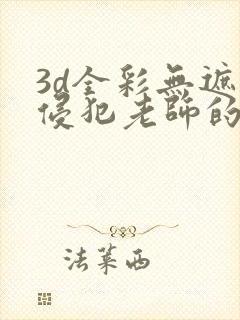 3d全彩無遮
侵犯老師的
法萊西